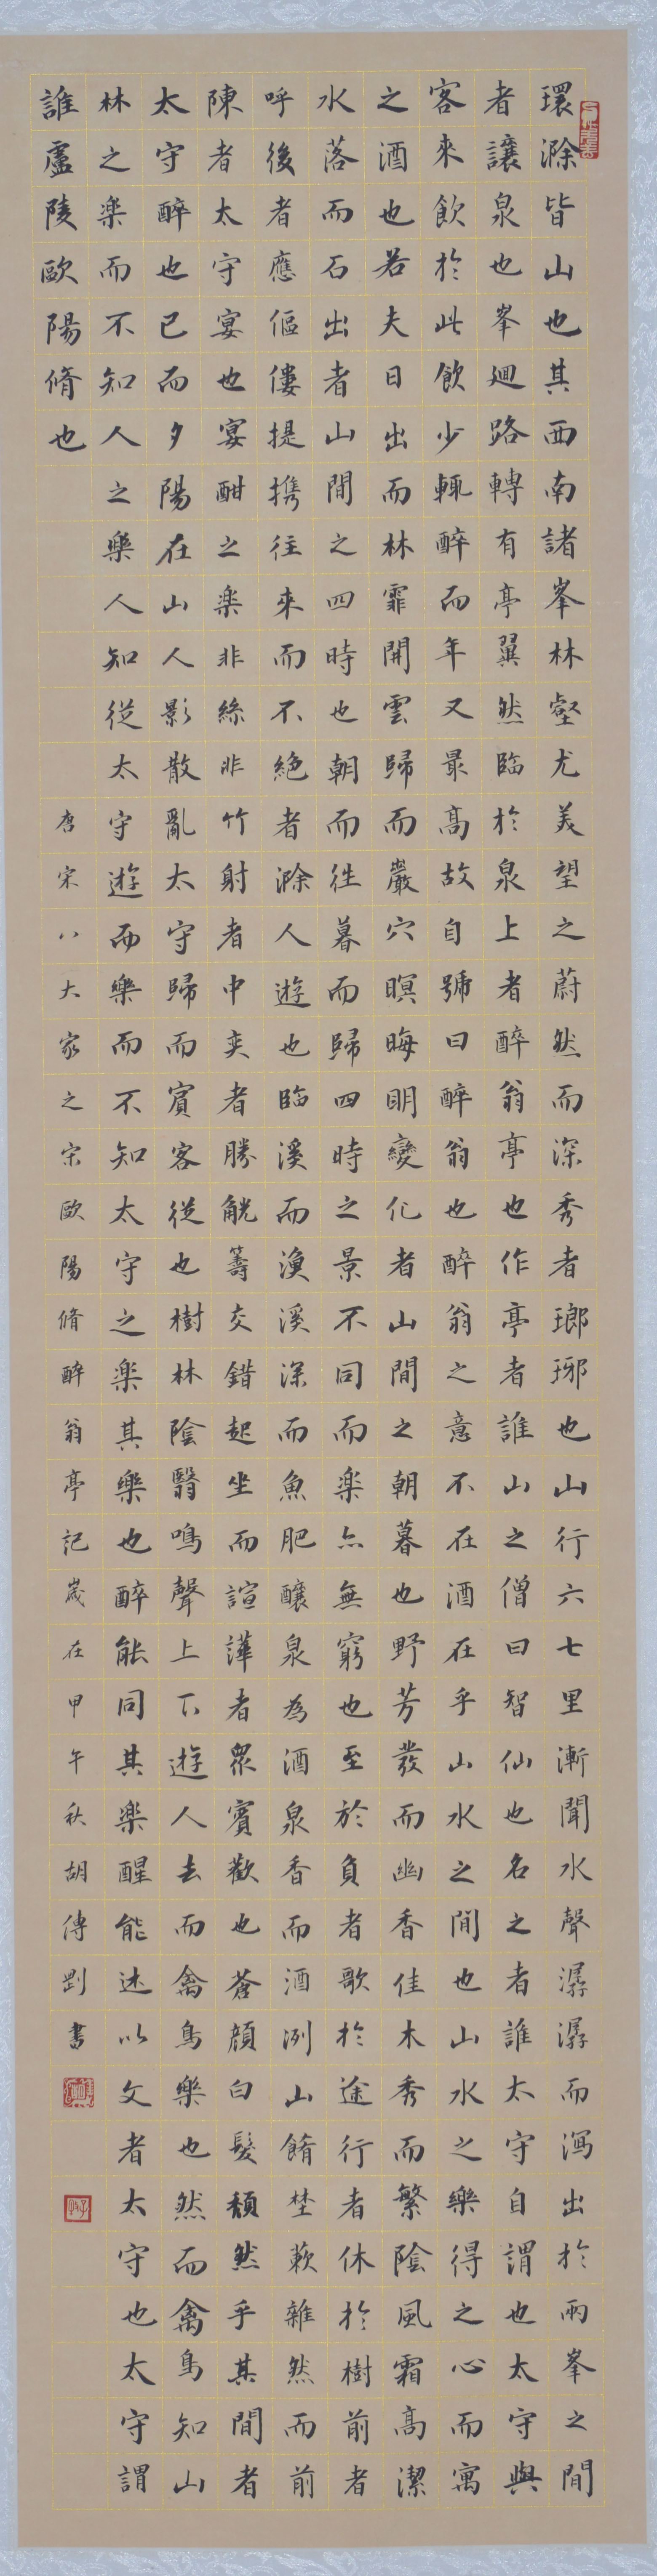 環滁皆山也其西南諸峯林壑尤美望之蔚然而深秀者瑯琊也山行六七里漸聞水聲潺潺而瀉出於兩峯之間
者讓泉也峯廻路轉有亭翼然臨於泉上者醉翁亭也作亭者誰山之僧曰智仙也名之者誰太守自謂也太守與
客來飲於此飲少輒醉而年又最高故自號曰醉翁也醉翁之意不在酒在乎山水之間也山水之樂得之心而寓
之酒也若夫日出而林霏開雲歸而巖穴暝晦明變化者山間之朝暮也野芳發而幽香佳木秀而繁陰風霜高潔
水落而石出者山間之四時也朝而往暮而歸四時之景不同而楽亦無窮也至於負者歌於途行者休於樹前者
呼後者應傴僂提携往來而不絶者滁人遊也臨溪而漁溪深而魚肥釀泉為酒泉香而酒洌山餚埜蔌雜然而前
陳者太守宴也宴酣之楽非絲非竹射者中奕者勝觥籌交錯起坐而諠譁者衆賓歡也蒼顔白髮頹然乎其間者
太守醉也已而夕陽在山人影散亂太守歸而賓客從也樹林陰翳鳴聲上下遊人去而禽鳥樂也然而禽鳥知山
林之楽而不知人之樂人知從太守遊而樂而不知太守之楽其樂也醉能同其楽醒能述以文者太守也太守謂
誰盧陵歐陽脩也
唐宋八大家之宋歐陽脩醉翁亭記歲在甲午秋胡傳書